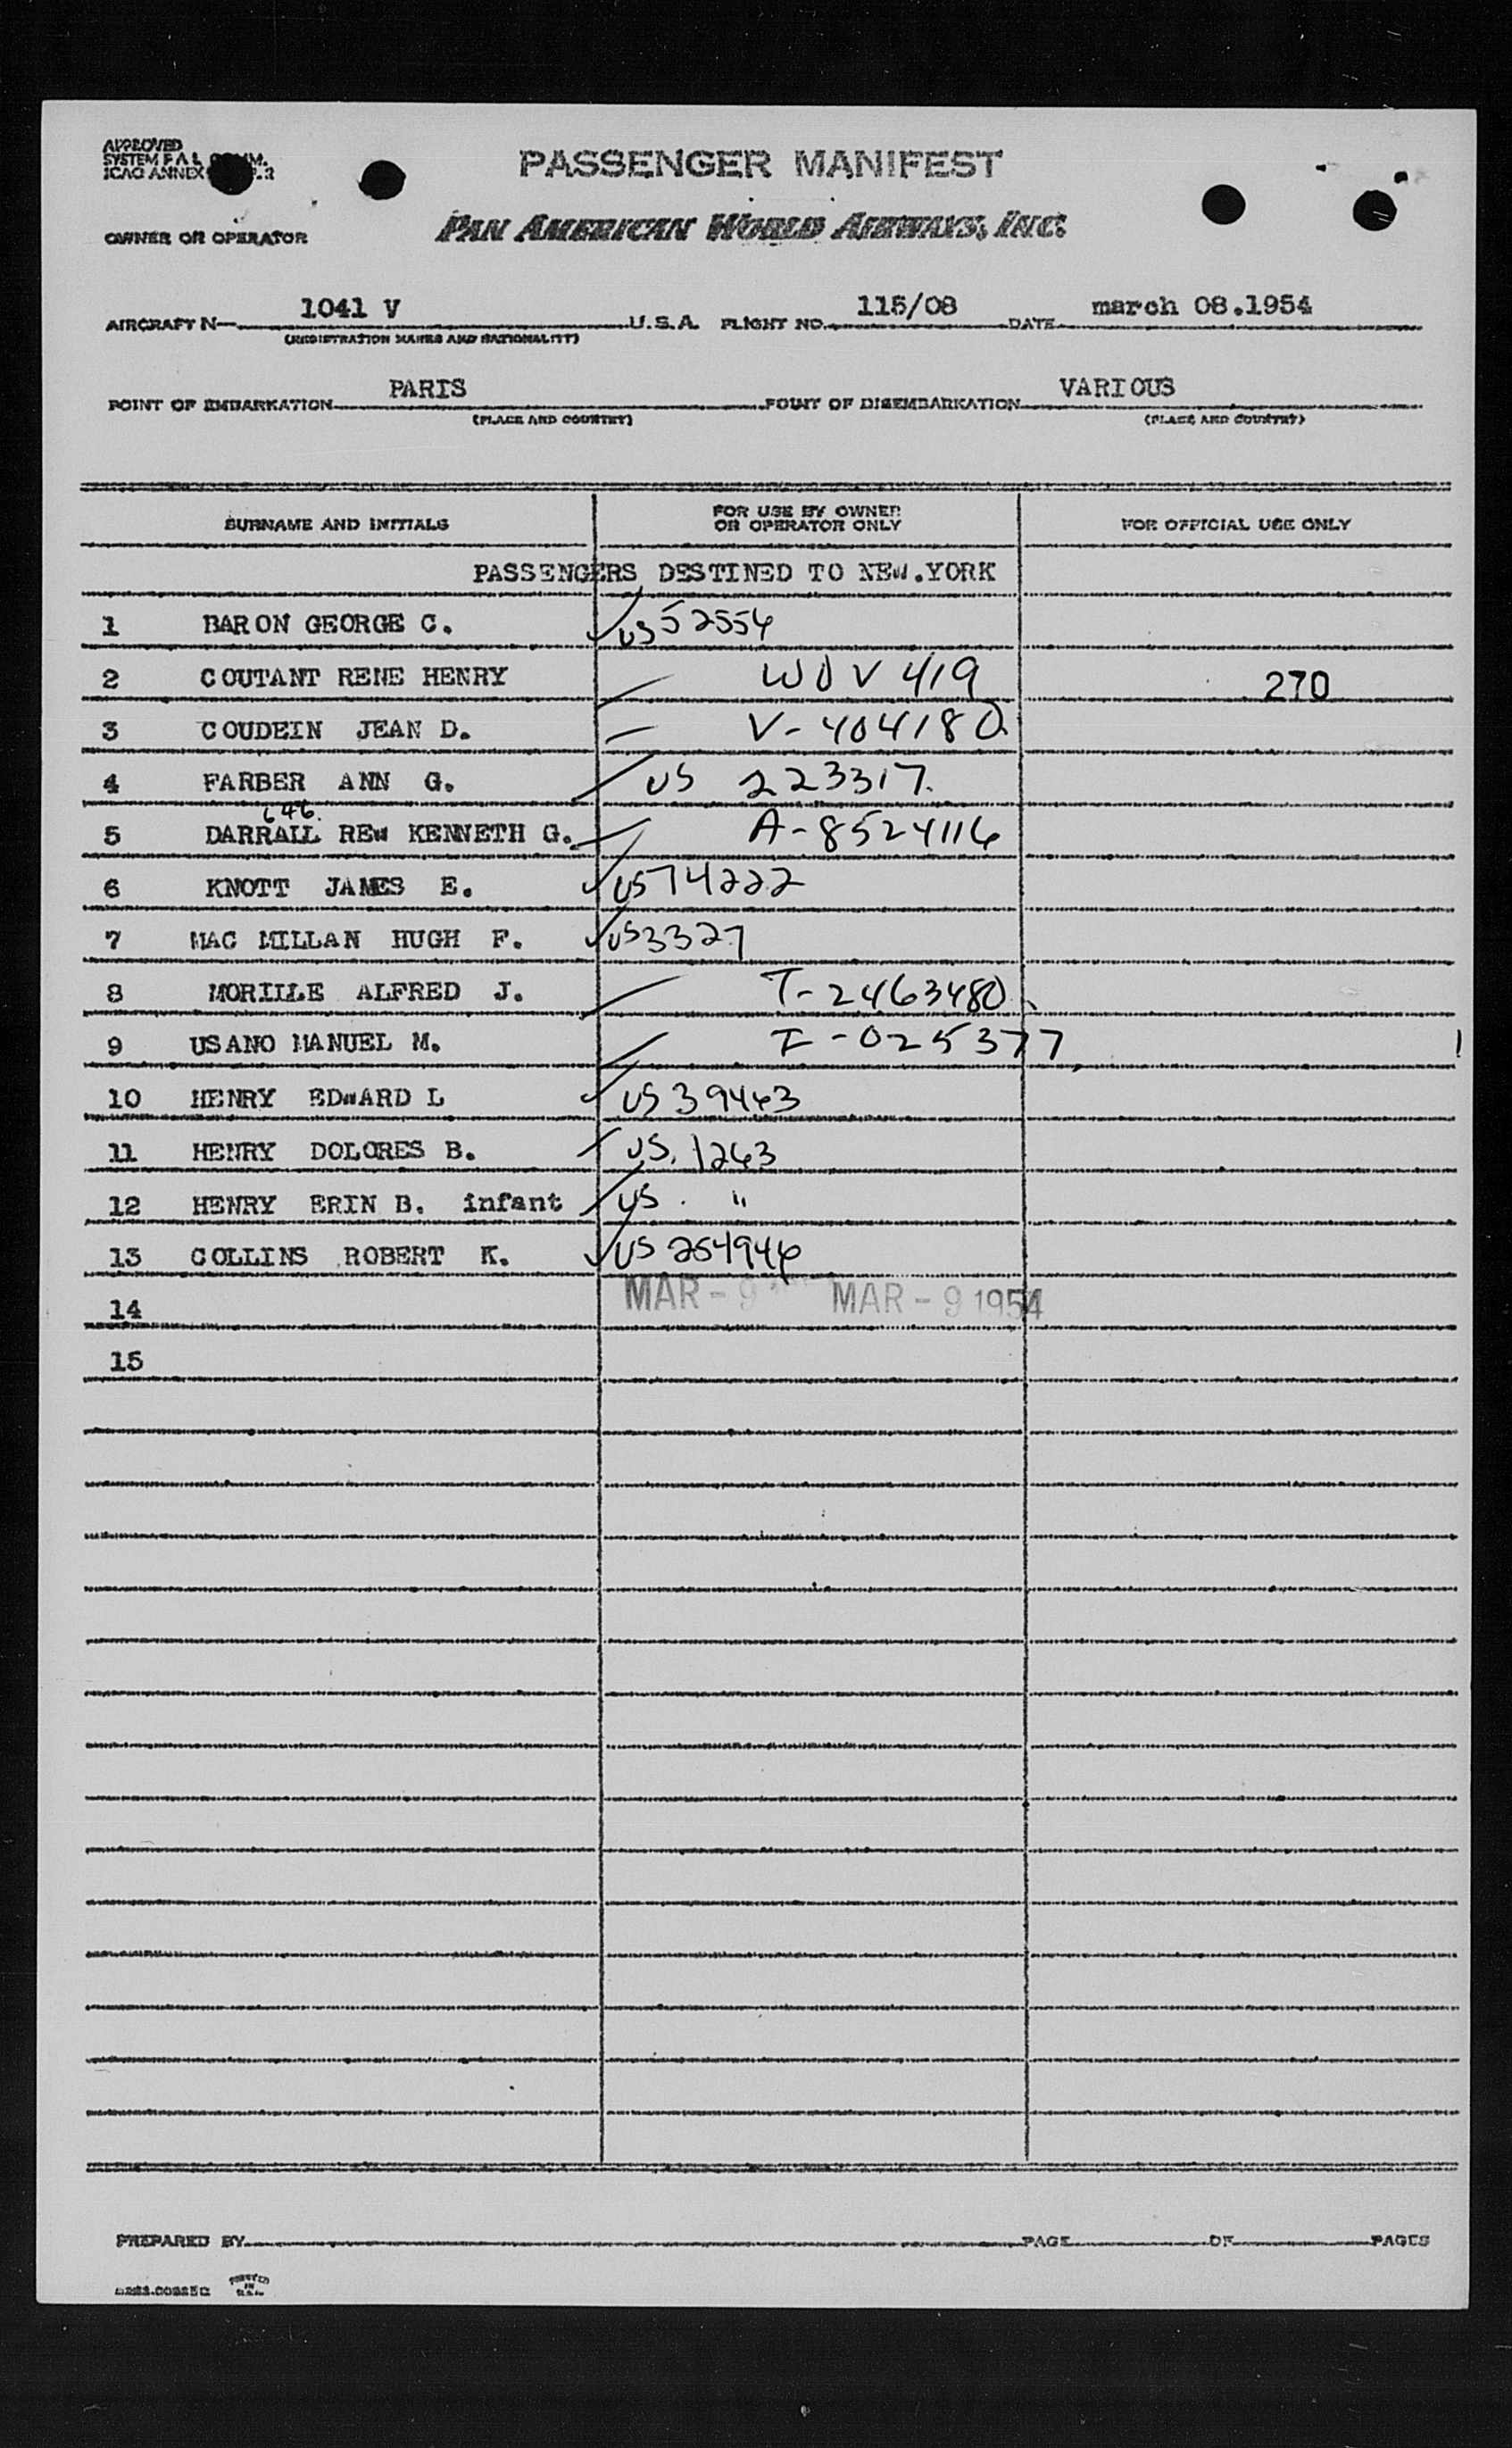 APPROVED
SYSTEM F A L COMM.
ICAO ANNEX
PASSENGER MANIFEST
OWNER OR OPERATOR
PAN AMERICAN WORLD AIRWAYS, INC.
AIRCRAFT N— 1041 V U.S.A. FLIGHT NO. 115/08 DATE march 08.1954
(REGISTRATION MARKS AND NATIONALITY)
POINT OF EMBARKATION PARIS POINT OF DISEMBARKATION VARIOUS
(PLACE AND COUNTRY) (PLACE AND COUNTRY)
SURNAME AND INITIALS FOR USE BY OWNER OR OPERATOR ONLY FOR OFFICIAL USE ONLY
PASSENGERS DESTINED TO NEW.YORK
1 BARON GEORGE C. US 52554
2 COUTANT RENE HENRY WOV 419 270
3 COUDEIN JEAN D. V-404180
4 FARBER ANN G. US 223317.
646.
5 DARRALL REW KENNETH G. A-8524116
6 KNOTT JAMES E. US 74222
7 MAC MILLAN HUGH F. US 3327
8 MORILLE ALFRED J. T-2463480
9 USANO MANUEL M. I-025377
10 HENRY EDWARD L US 39443
11 HENRY DOLORES B. US. 1263
12 HENRY ERIN B. infant US . "
13 COLLINS ROBERT K. US 254946
14 MAR-9 MAR-9 1954
15
PREPARED BY PAGE OF PAGES
PRINTED
IN
U.S.A.